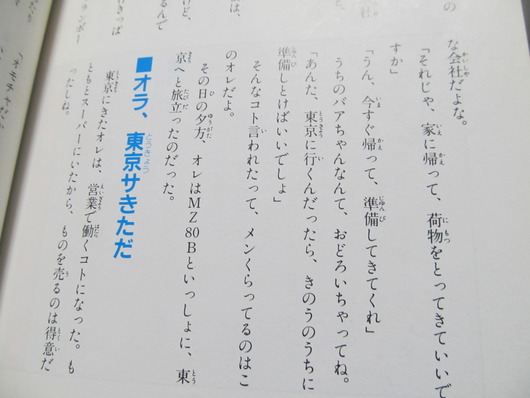 な会社だよな。
「それじゃ、家に帰って、荷物をとってきていいで
すか」
「うん、今すぐ帰って、準備してきてくれ」
うちのバアちゃんなんて、おどろいちゃってね。
「あんた、東京に行くんだったら、きのうのうちに
準備しとけばいいでしょ」
そんなコト言われたって、メンくらってるのはこ
のオレだよ。
その日の夕方、オレはMZ80Bといっしょに、東
京へと旅立ったのだった。
■オラ、東京サきただ
東京にきたオレは、営業で働くコトになった。も
ともとスーパーにいたから、ものを売るのは得意だ
ったしね。